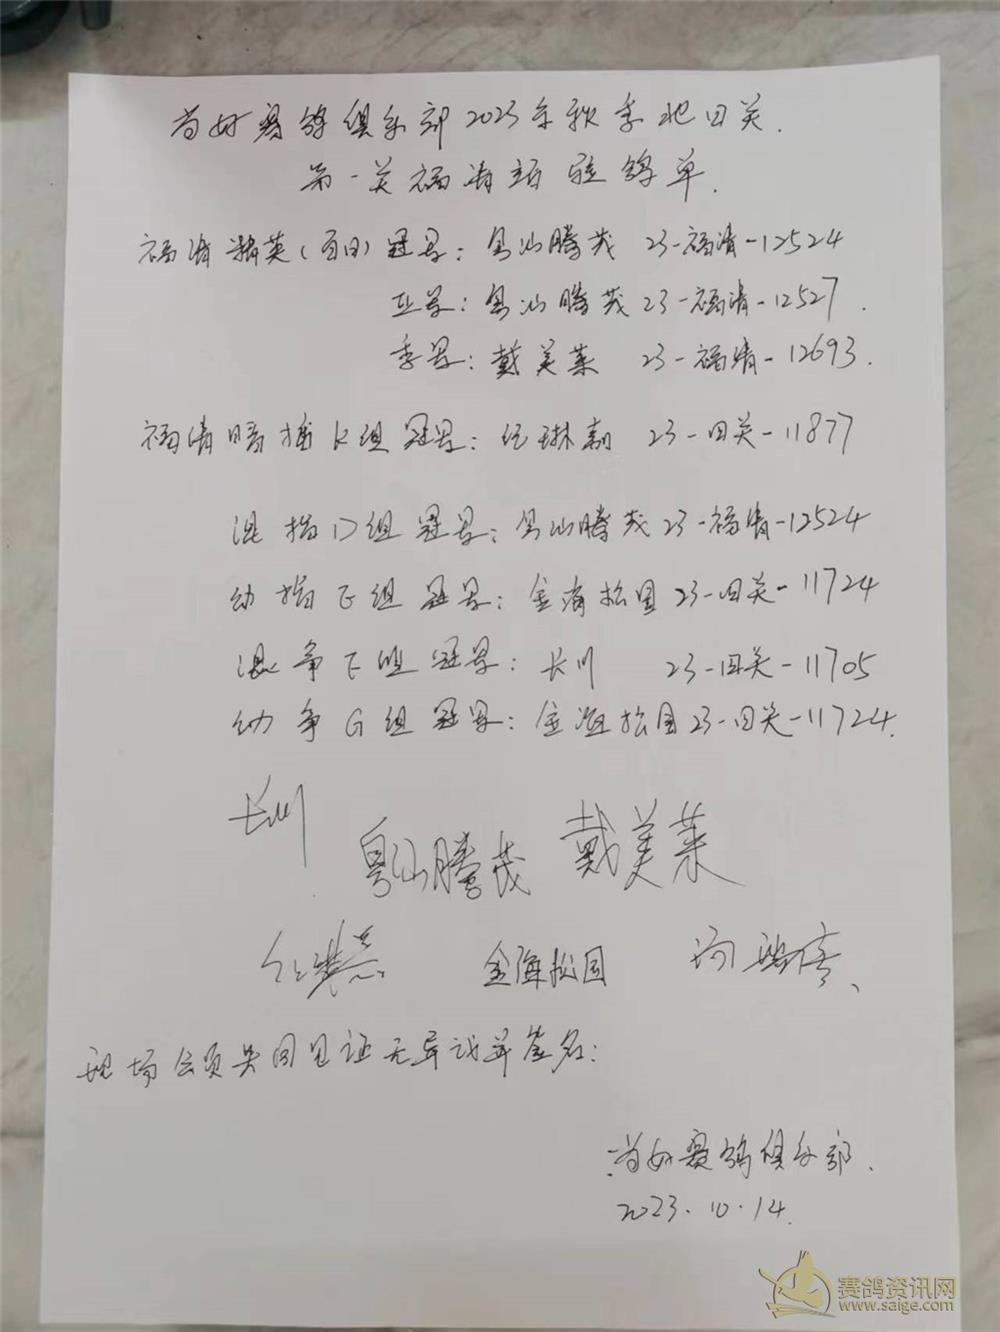 尚好赛鸽俱乐部2023年秋季北四关
第一关福清站验鸽单
福清精英(百田)冠军：粤汕腾茂 23-福清-12524
亚军：粤汕腾茂 23-福清-12527
季军：戴美莱 23-福清-12693.
福清暗插K组冠军：任琳 23-四关-11877
混指D组冠军：粤汕腾茂 23-福清-12524
幼指E组冠军：金海松国 23-四关-11724
混争F组冠军：长川 23-四关-11705
幼争G组冠军：金海松国 23-四关-11724.
长川
粤汕腾茂 戴美莱
金海松国
现场会员共同见证无异议并签名：
尚好赛鸽俱乐部.
2023.10.14.
赛鸽资讯网
www.saige.com